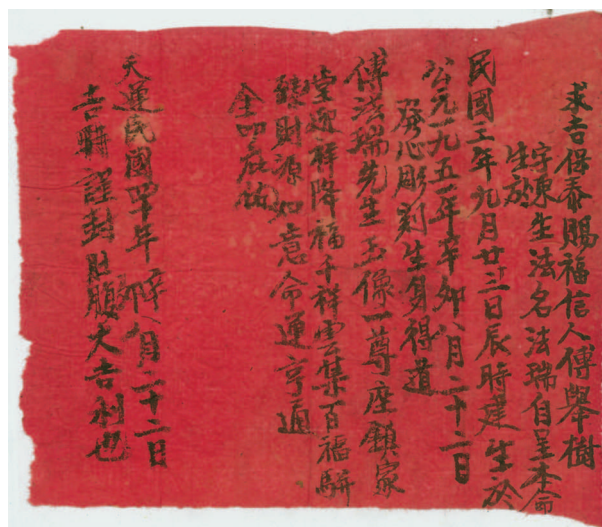 求吉保泰賜福信人傅舉樹
字東生法名法瑞自呈本命
生於
民國三年九月廿三日辰時建生於
公元一九五一年辛卯八月二十二日
發心彫刻生身得道
傅法瑞先生玉像一尊座鎮家
堂迎祥降福千祥雲集百福駢
臻財源如意命通亨通
全叩庇佑
天運民國四十年辛卯八月二十二日
吉時謹封肚腹大吉利也